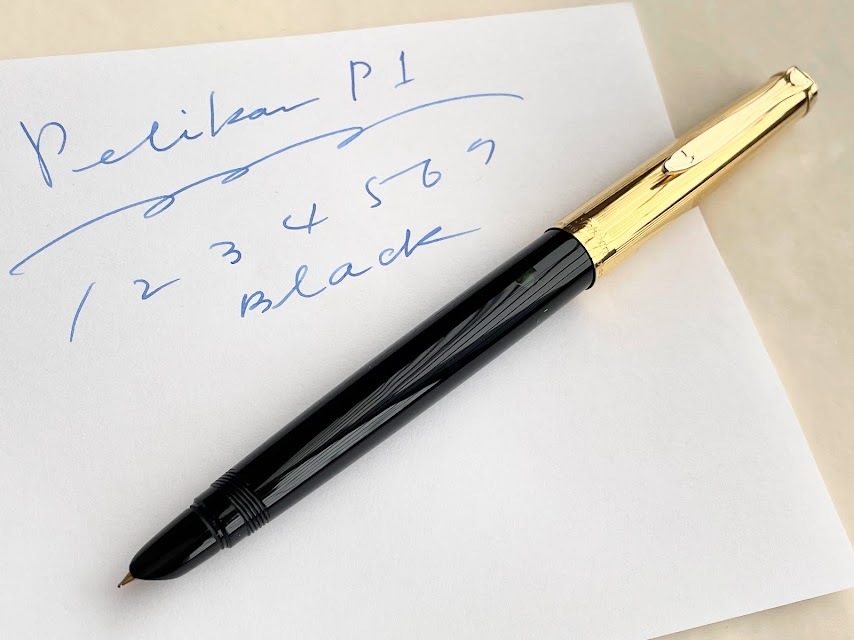 Pelikan P1
1 2 3 4 5 6 7
Black